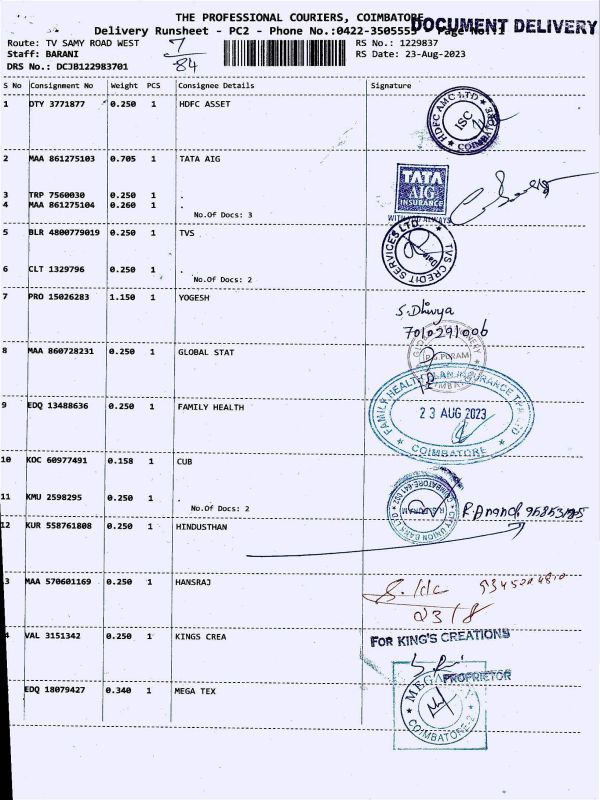 THE PROFESSIONAL COURIERS, COIMBATORE
DOCUMENT DELIVERY
Delivery Runsheet - PC2 - Phone No.:0422-3505555 Page No.:1
Route: TV SAMY ROAD WEST
7
RS No.: 1229837
Staff: BARANI
84
RS Date: 23-Aug-2023
DRS No.: DCJB122983701
S No Consignment No Weight PCS Consignee Details Signature
1 DTY 3771877 0.250 1 HDFC ASSET
HDFC AMC LTD
ISC
2 MAA 861275103 0.705 1 TATA AIG
TATA
AIG
INSURANCE
3 TRP 7560030 0.250 1 .
4 MAA 861275104 0.260 1 .
No.Of Docs: 3
WITH YOU ALWAYS
5 BLR 4800779019 0.250 1 TVS
TVS CREDIT SERVICES LTD.
6 CLT 1329796 0.250 1 .
No.Of Docs: 2
7 PRO 15026283 1.150 1 YOGESH
S. Dhivya
7010291006
8 MAA 860728231 0.250 1 GLOBAL STAT
R.S. PURAM
9 EDQ 13488636 0.250 1 FAMILY HEALTH
FAMILY HEALTH PLAN INSURANCE TPA LTD
23 AUG 2023
COIMBATORE
10 KOC 60977491 0.158 1 CUB
11 KMU 2598295 0.250 1 .
No.Of Docs: 2
CITY UNION BANK LTD
R.S. PURAM
COIMBATORE 641 002
R. Anand
12 KUR 558761808 0.250 1 HINDUSTHAN
3 MAA 570601169 0.250 1 HANSRAJ
23/8
4 VAL 3151342 0.250 1 KINGS CREA
FOR KING'S CREATIONS
PROPRIETOR
EDQ 18079427 0.340 1 MEGA TEX
MEGA
COIMBATORE-2